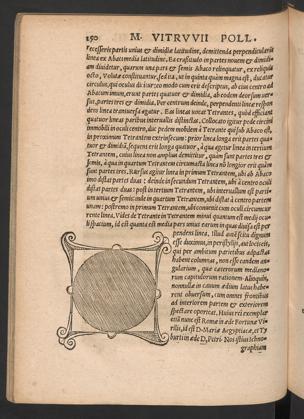 150 M. VITRVVII POLL.
recesseris partis unius & dimidiæ latitudine, demittenda perpendiculariter
linea ex Abaci media latitudine. Ea crassitudo in partes novem & dimidi-
am dividetur, quarum una pars & semis Abaco relinquatur, ex reliquis
octo, Volutæ constituantur, sed ita, ut in quinta quam
circulus, qui oculus dicitur eo modo cum
Abacum imum, erunt partes quatuor & dimidia, ab eodem deorsum ver-
sus, partes tres & dimidia. Per centrum deinde, perpendenti lineæ respon-
dens linea transversa agatur. Eæ lineæ vocat Tetrantes, quòd efficiant
quatuor lineas paribus intervallis distinctas. Collocato igitur pede circini
immobili in oculi centro, duc pedem mobilem à Tetrante qui sub Abaco est,
in proximum Tetrantem exteriorem: prior linea longa erit partes qua-
tuor & dimidia, sequens erit longa quatuor, à qua agetur linea in tertium
Tetrantem, cuius linea non amplius demittitur, quàm sunt partes tres &
semis, à qua in quartum Tetrantem circumacta linea nō longior erit quàm
sunt partes tres. Rursus agitur linea in primum Tetrantem, ubi ab Abaco
imo distat partes duas: deinde in secundum Tetrantem, ubi à centro oculi
distat partes duas: post in tertium Tetrantem, ubi intervallum est parti-
um unius & semis: inde in quartum Tetrantem, ubi distat à centro partem
unam: postremo in primum Tetrantem, ubi convenit cum oculi circumcur-
rente linea. Vides de Tetrante in Tetrantem minui quantum est medij ocu-
li spatium, id est quanta est media pars unius earum in quas divisa est per-
pendens linea. Illud autē scitu dignum
esse duximus, in peristylijs, aut locis eis,
qui per ambitum parietibus adpactas
habent columnas, non esse eandem an-
gularium, quæ cæterorum mediano-
rum capitulorum rationem. Alioquin,
nonnulla in cavum ædium latus habe-
rent obversum, cum omnes frontibus
ad interiorem partem & exteriorem
spectare oporteat. Huius rei exempla-
etiā nunc est Romæ in æde Fortunæ Vi-
rilis, id est D. Mariæ Ægyptiacæ, et Ty-
burti in æde D. Petri. Nos istius Ichno-
graphiam